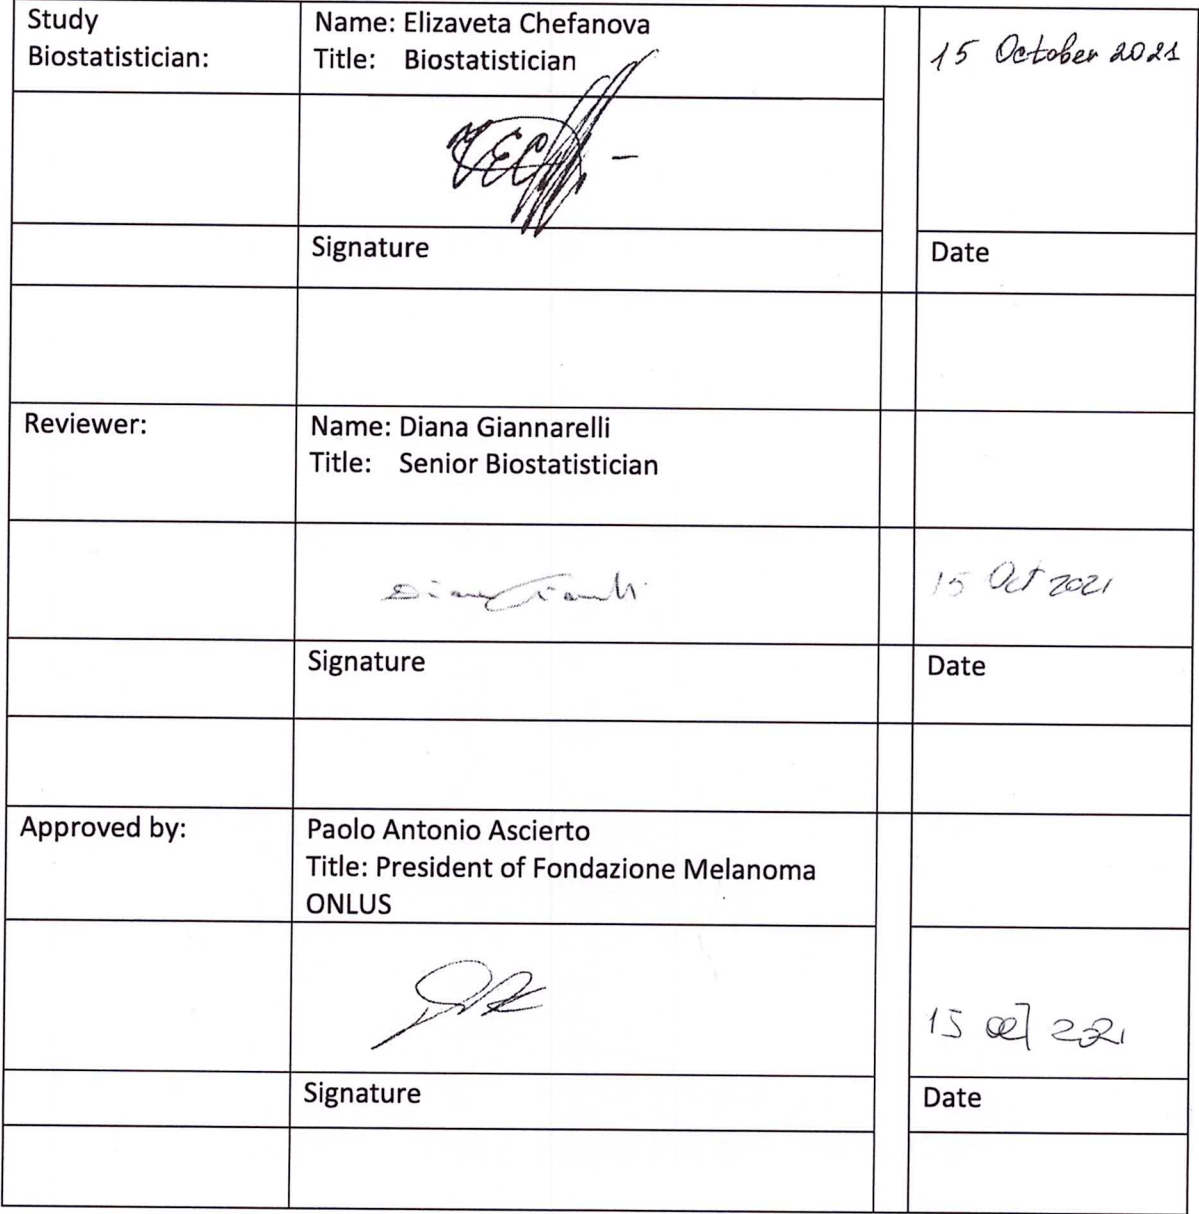 Study
Biostatistician:
Name: Elizaveta Chefanova
Title: Biostatistician
15 October 2021
Signature
Date
Reviewer:
Name: Diana Giannarelli
Title: Senior Biostatistician
15 Oct 2021
Signature
Date
Approved by:
Paolo Antonio Ascierto
Title: President of Fondazione Melanoma
ONLUS
15
Signature
Date